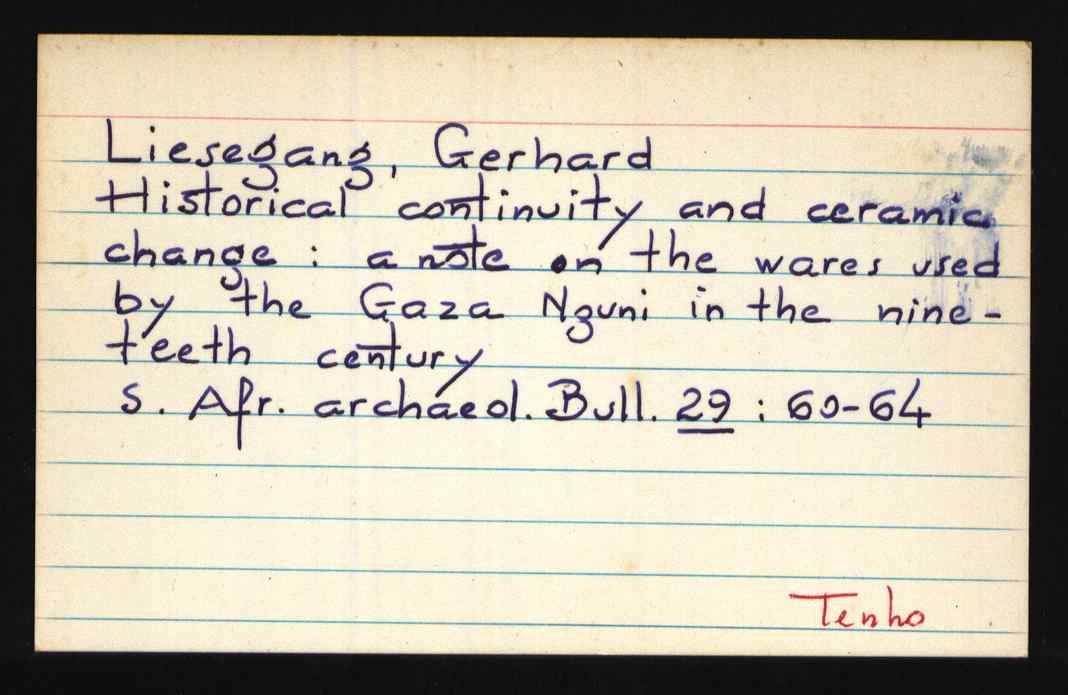 Liesegang, Gerhard
Historical continuity and ceramic
change : a note on the wares used
by the Gaza Nguni in the nine-
teeth century
S. Afr. archaeol. Bull. 29 : 60-64
Tenho